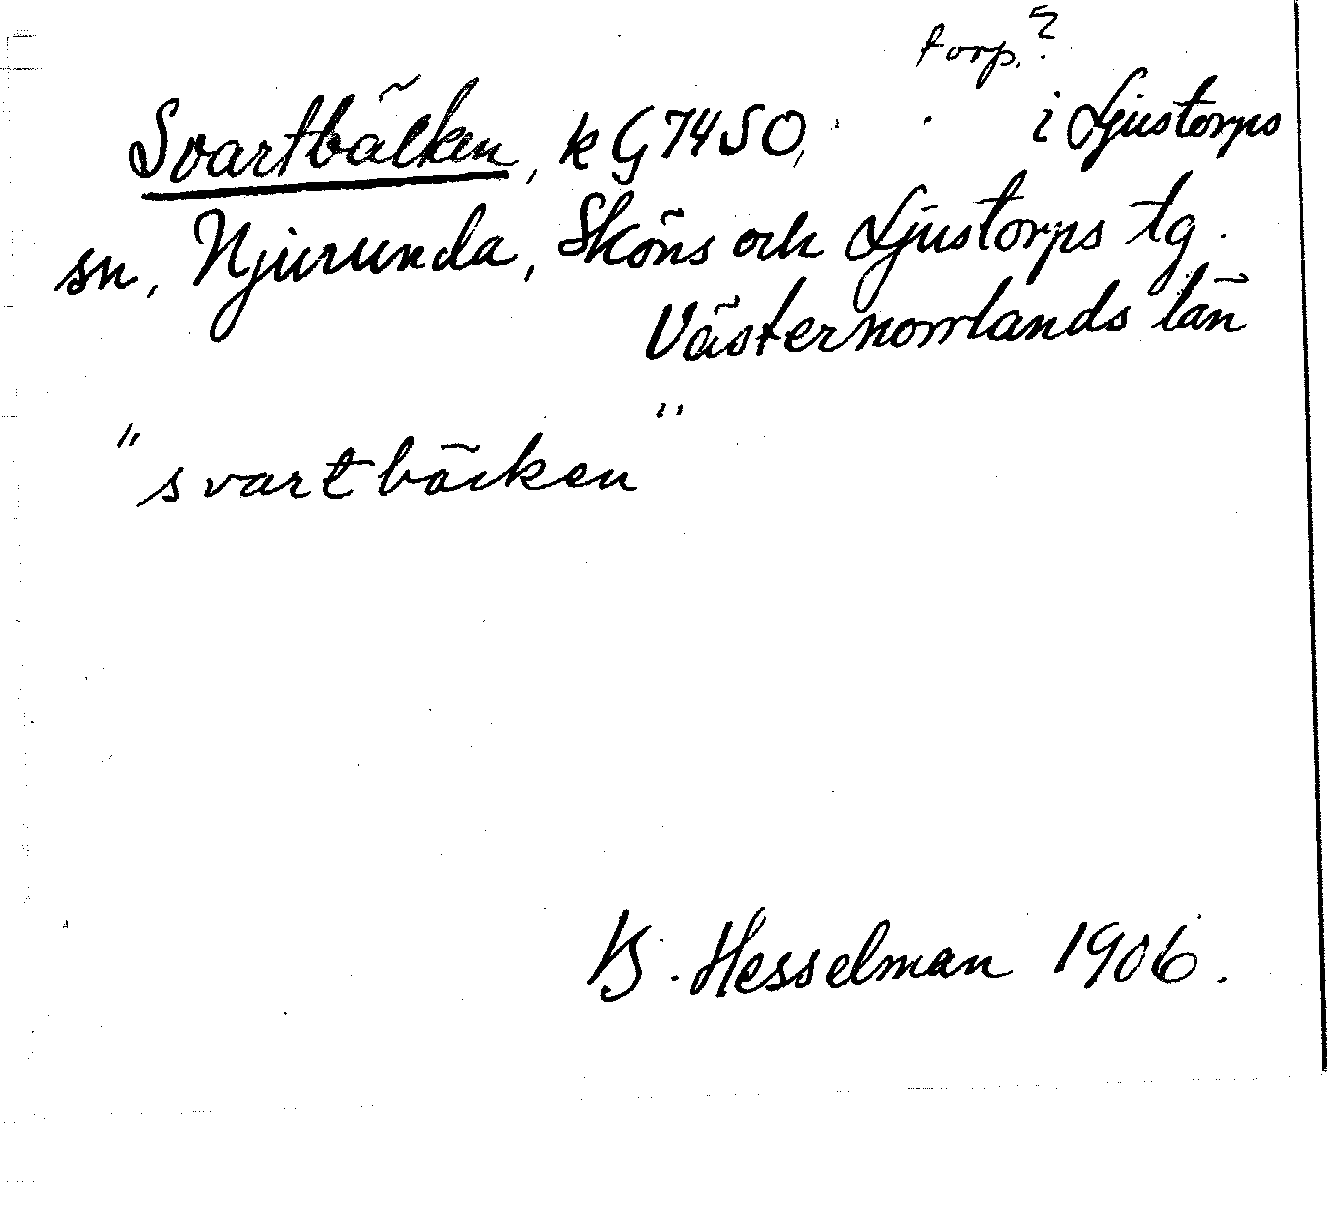 torp.?
Svartbäcken, k G74SO, i Ljustorps
sn, Njurunda, Sköns och Ljustorps tg.
Västernorrlands län
"svartbäcken"
B. Hesselman 1906.